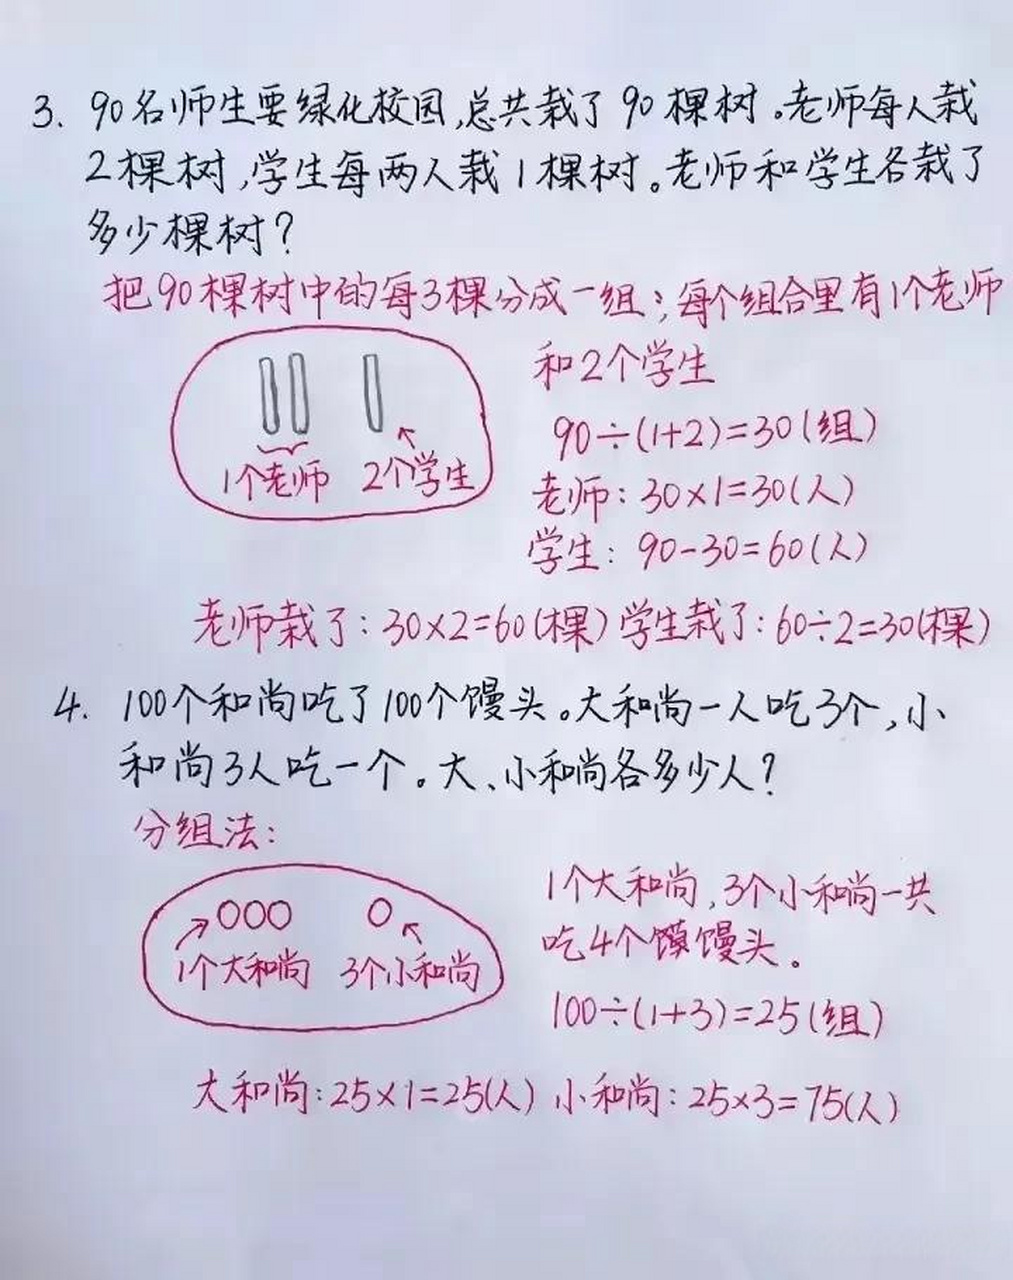 3. 90名师生要绿化校园,总共栽了90棵树。老师每人栽
2棵树,学生每两人栽1棵树。老师和学生各栽了
多少棵树?
把90棵树中的每3棵分成一组;每个组合里有1个老师
和2个学生
1个老师 2个学生
90÷(1+2)=30(组)
老师:30×1=30(人)
学生:90-30=60(人)
老师栽了:30×2=60(棵) 学生栽了:60÷2=30(棵)
4. 100个和尚吃了100个馒头。大和尚一人吃3个,小
和尚3人吃一个。大、小和尚各多少人?
分组法:
1个大和尚 3个小和尚
1个大和尚,3个小和尚一共
吃4个馒头。
100÷(1+3)=25(组)
大和尚:25×1=25(人) 小和尚:25×3=75(人)